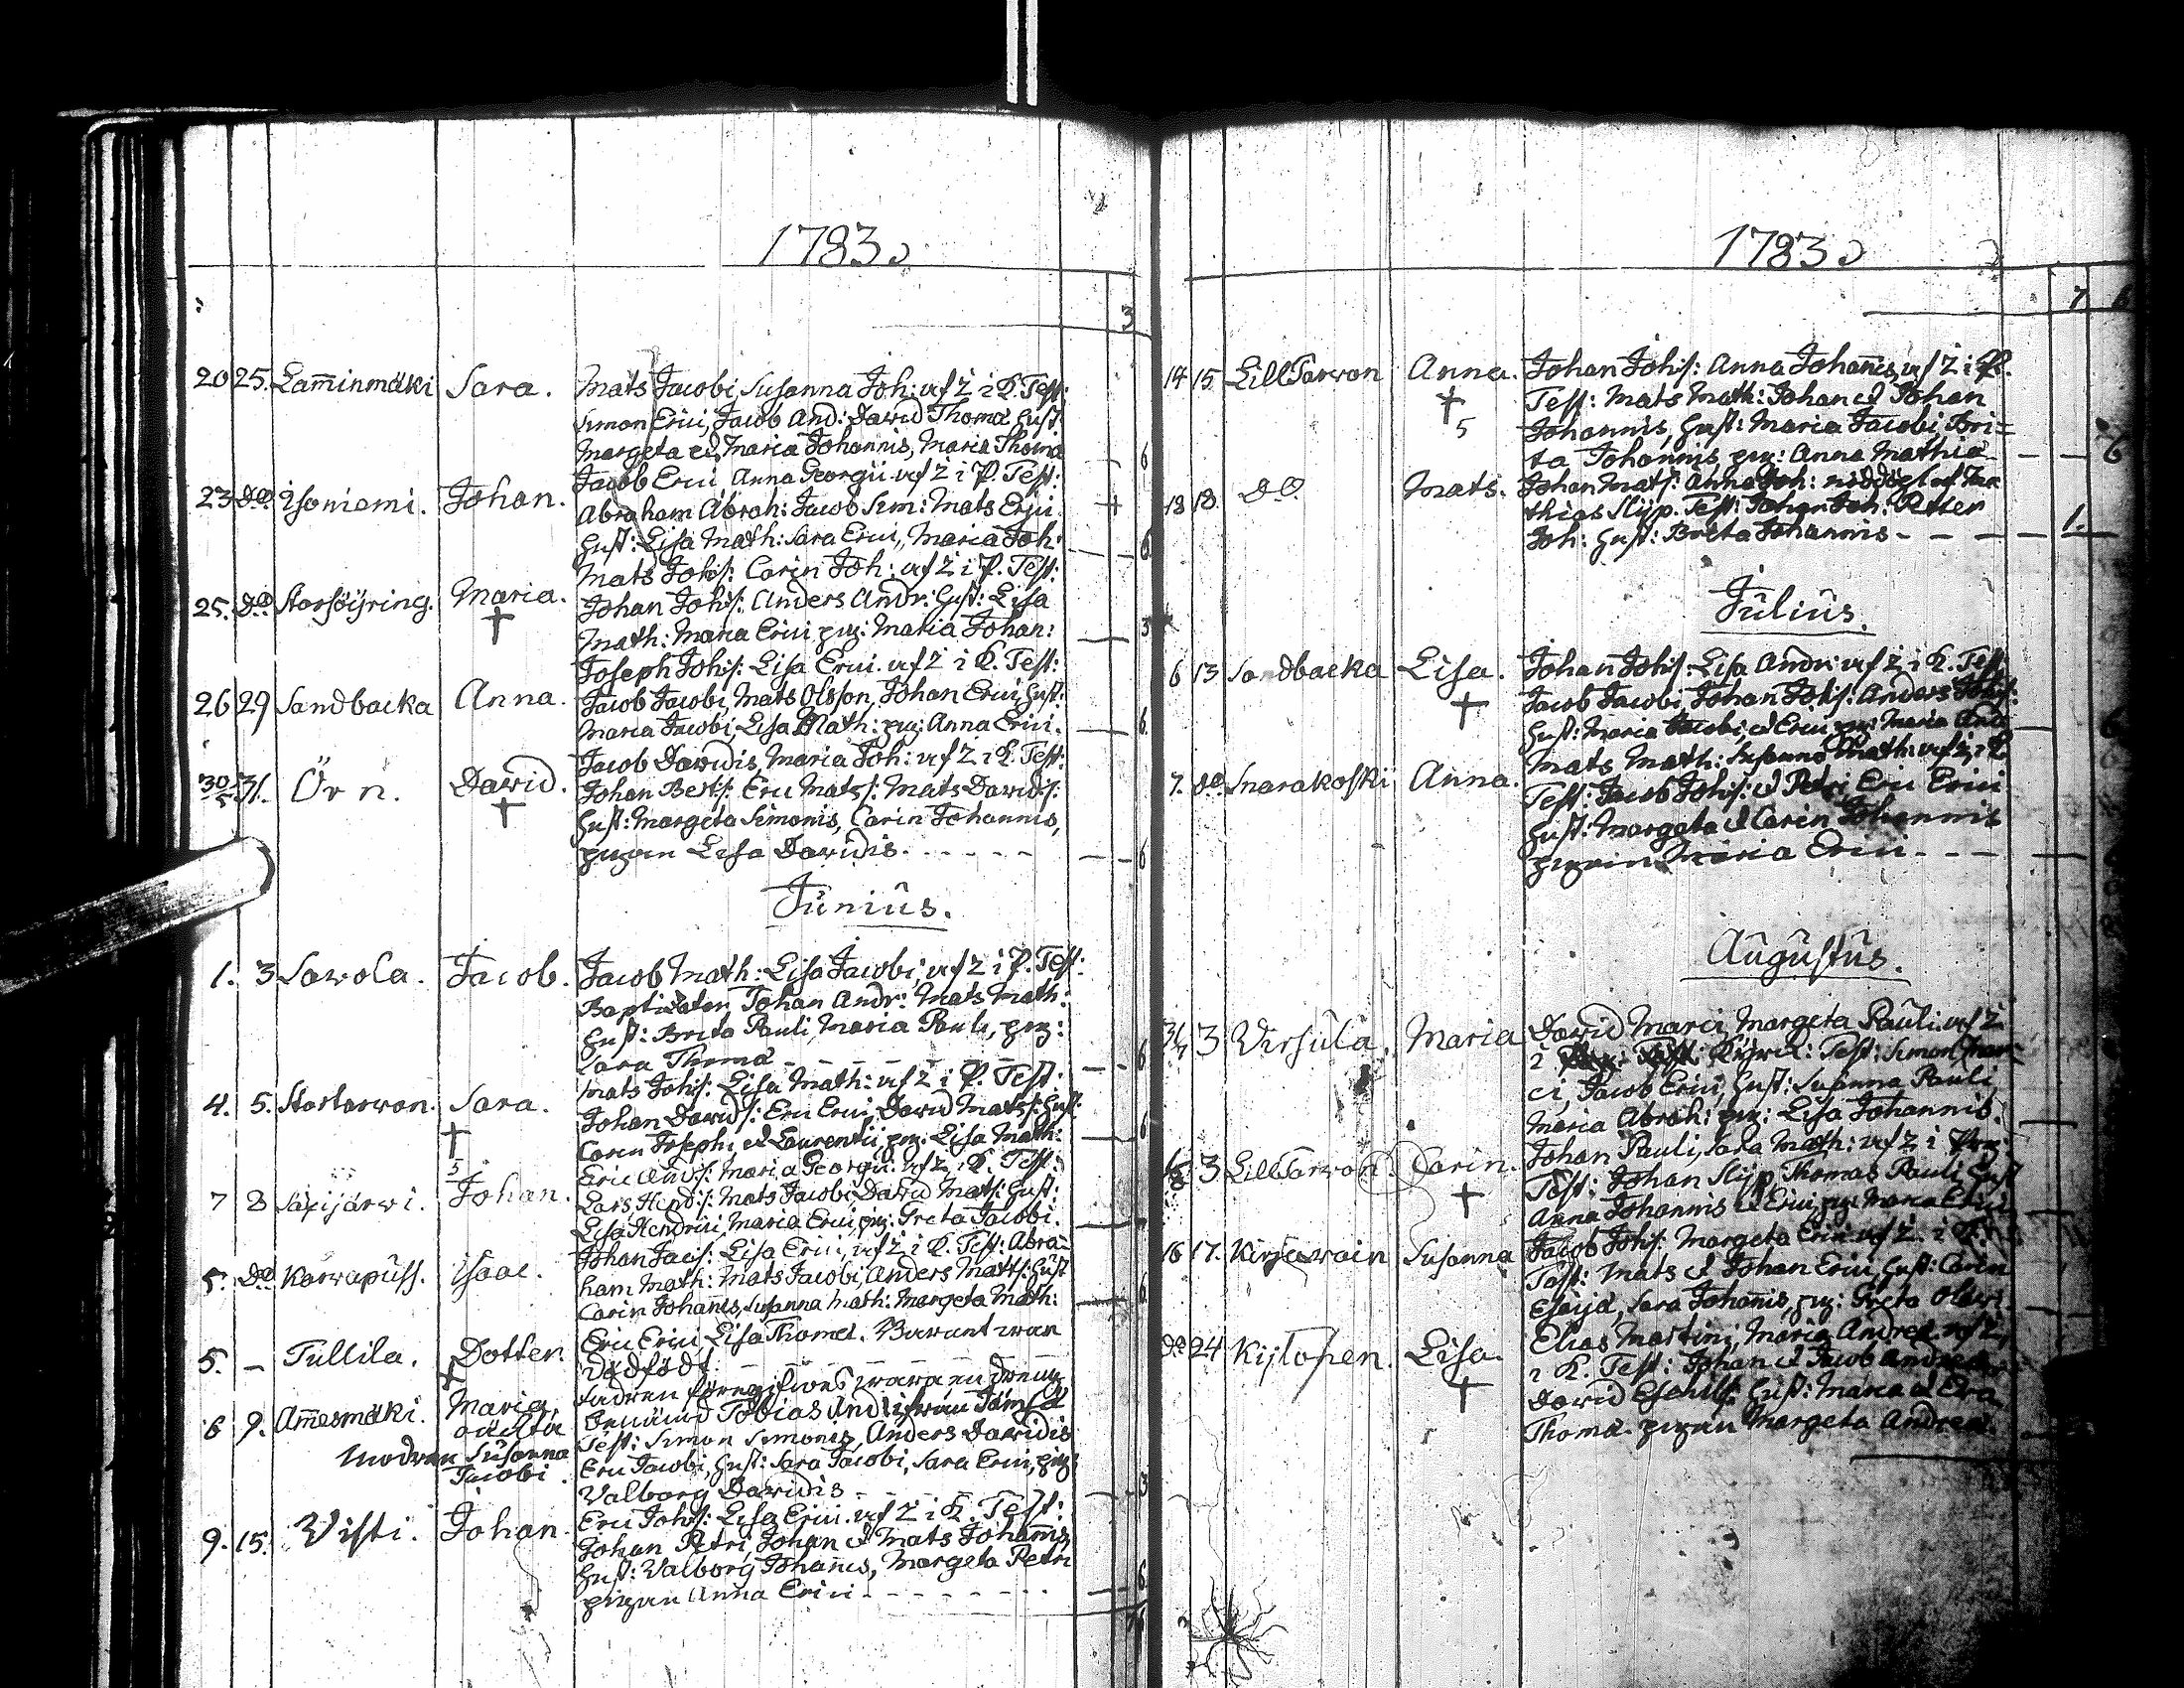 1783
3
20 25. Laminmäki Sara. Mats Jacobi, Susanna Joh: utf Z i K. Test:
Simon Erici, Jacob And: David Thomæ Hust:
Margeta et Maria Johannis, Maria Thomæ 6
23 do Isoniemi. Johan. Jacob Erici Anna Georgii utf Z i P. Test:
Abraham Abrah: Jacob Sim: Mats Erici
Hust: Lisa Math: Sara Erici, Maria Joh: 6
25. do Storsöyring. Maria. Mats Johs: Carin Joh: utf Z i P. Test:
Johan Johs: Anders Andr: Hust: Lisa
Math: Maria Erici pig: Maria Johan: 3
26 29 Sandbacka Anna. Joseph Johs: Lisa Erici. utf Z i K. Test:
Jacob Jacobi, Mats Olsson, Johan Erici, Hust:
Maria Jacobi, Lisa Math: pig: Anna Erici. 6
30/5 31. Örn. David. Jacob Davidis, Maria Joh: utf Z i K. Test:
Johan Berts: Eric Mats: Mats Davids:
Hust: Margeta Simonis, Carin Johannis,
pigan Lisa Davidis. 6
Junius.
1. 3 Savola. Jacob. Jacob Math: Lisa Jacobi, utf Z i P. Test:
Johan Andr: Mats Math:
Hust: Brita Pauli, Maria Pauli, pig:
Sara Thomæ 6
4. 5. Stortarvon. Sara. Mats Johs: Lisa Math: utf Z i P. Test:
Johan Davids: Eric Erici, David Mats: Hust:
Carin Josephi, et Laurentii, pig: Lisa Math: 6
5
7 8 Säxijärvi. Johan. Eric Ands: Maria Georgii. utf Z i K. Test:
Lars Hend: Mats Jacobi, David Mats: Hust:
Lisa Hendrici, Maria Erici, pig: Greta Jacobi.
5. do Korvapuss. Isaac. Johan Jacs: Lisa Erici, utf Z i K. Test: Abra=
ham Math: Mats Jacobi, Anders Matts: Hust
Carin Johanes, Susanna Math: Margeta Math: 6
5. – Tullila. Dotter. Eric Erici, Lisa Thomæ. Barnet war
dödfödt
6 9. Amesmäki. Maria, oäckta Fadren föregifwes wara en dreng
benämd Tobias Jämsä
Modren Susanna Jacobi. Test: Simon Simonis, Anders Davidis
Eric Jacobi, Hust: Sara Jacobi, Sara Erici, pig:
Valborg Davidis 3
9. 15. Visti. Johan. Eric Johs: Lisa Erici. utf Z i K. Test:
Johan Petri, Johan et Mats Johannis,
Hust: Valborg Johanes, Margeta Petri
pigan Anna Erici 6
1783
7
14 15 LillTarvon Anna. Johan Johs: Anna Johannis, utf Z i P.
Test: Mats Math: Johan et Johan
5 Johannis, Hust: Maria Jacobi, Bri=
ta Johannis pig: Anna Mathiæ 6
18 18 do Mats. Johan Mats: Anna Joh:
thias Slip. Test: Johan Joh: Petter
Joh: Hust: Brita Johannis 1.
Julius.
6 13 Sandbacka Lisa. Johan Johs: Lisa Andr: utf Z i K. Test
Jacob Jacobi, Johan Johs: Anders Johs:
Hust: Maria Jacobi, et Erici pig: Maria And: 6
7. do Snarakoski Anna. Mats Math: Susanna Math: utf Z i K
Test: Jacob Johs: et Petri Eric Erici
Hust: Margeta et Carin Johannis
pigan Maria Erici
Augustus.
31/7 3 Virsula. Maria David Marci, Margeta Pauli. utf Z
i Test: Simon Mar=
ci, Jacob Erici, Hust: Susanna Pauli
Maria Abrah: pig: Lisa Johannis.
3 LillTarvon Carin. Johan Pauli, Sara Math: utf Z i
Test: Johan Slip Thomas Pauli, Hust
Anna Johannis et Erici, pig: Maria Erici
16 17. Kirjavain Susanna Jacob Johs: Margeta Erici utf Z. i K.
Test: Mats et Johan Erici, Hust: Carin
Esaiæ, Sara Johanis, pig: Greta
do 24 Kijlopen. Lisa. Elias Martini, Maria Andreæ utf Z,
i K. Test: Johan et Jacob Andreæ
David Eskils: Hust: Maria et Eva
Thomæ. pigan Margeta Andreæ.